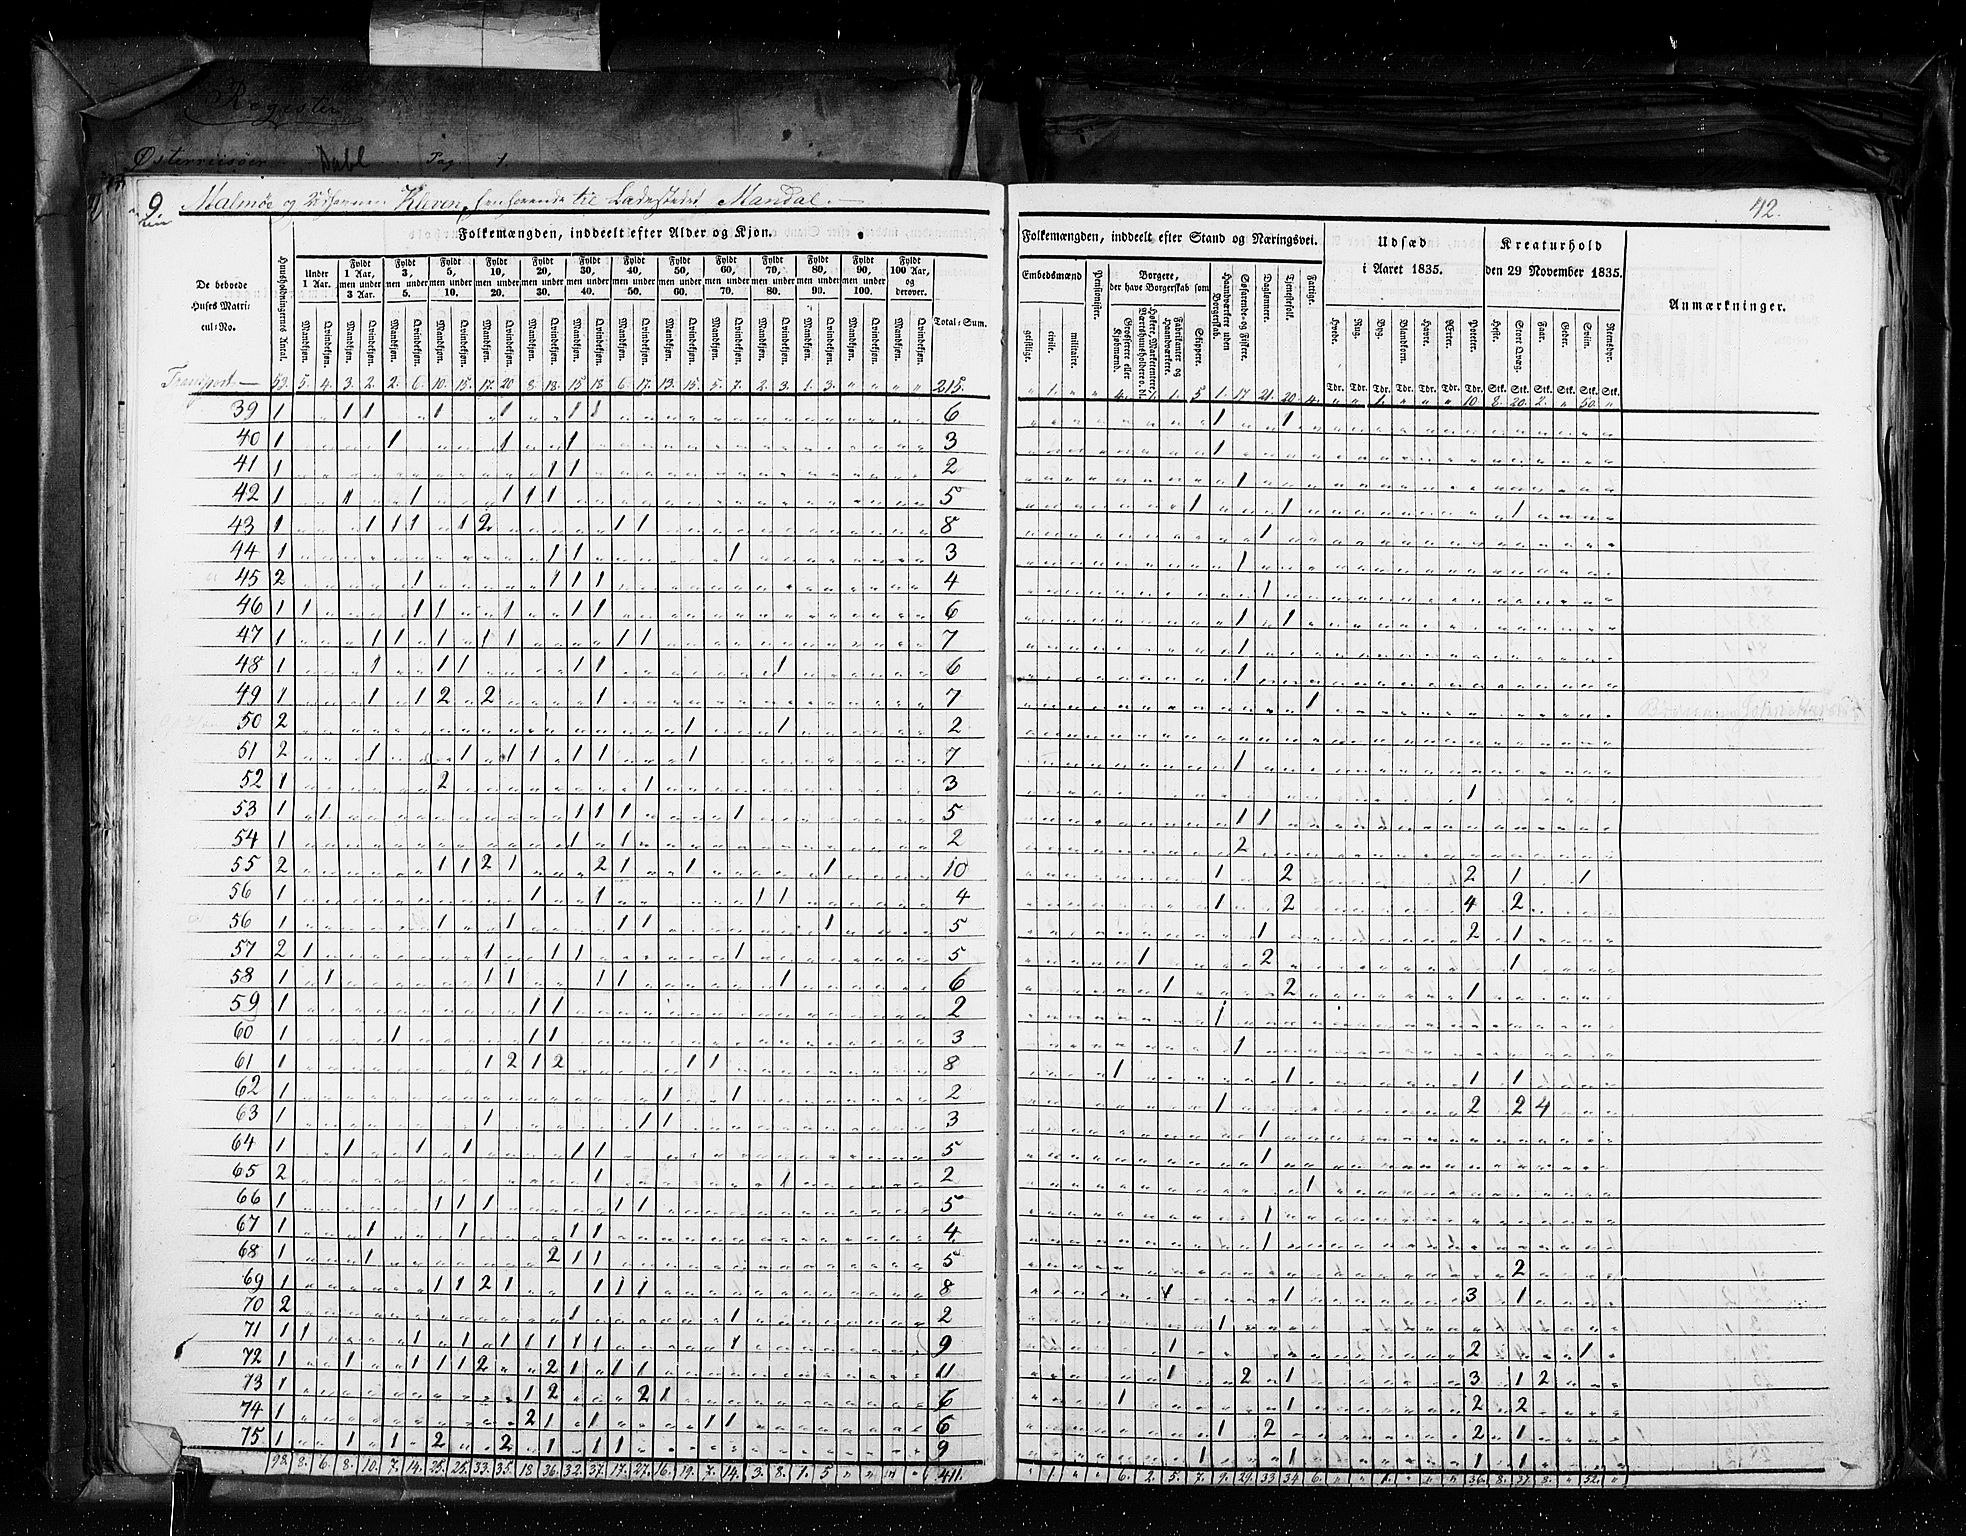 Register
Østerrisöer Dahl Pag 1.
9 Malmøe og Udhavnen Kleven, henhørende til Ladestedet Mandal.
42.
Folkemængden, inddeelt efter Alder og Kjøn.
Folkemængden, inddeelt efter Stand og Næringsvei.
Udsæd i Aaret 1835.
Kreaturhold den 29 November 1835.
Anmærkninger.
De beboede Huses Matricul-No.
Huusholdningernes Antal.
Under 1 Aar.
Fyldt 1 Aar, men under 3 Aar.
Fyldt 3, men under 5.
Fyldt 5, men under 10.
Fyldt 10, men under 20.
Fyldt 20, men under 30.
Fyldt 30, men under 40.
Fyldt 40, men under 50.
Fyldt 50, men under 60.
Fyldt 60, men under 70.
Fyldt 70, men under 80.
Fyldt 80, men under 90.
Fyldt 90, men under 100.
Fyldt 100 Aar, og derover.
Mandkjøn. Qvindekjøn.
Total-Sum.
Embedsmænd
geistlige. civile. militaire.
Pensionister.
Borgere, der have Borgerskab som
Grosserere eller Kjøbmænd.
Høkere, Marketentere, Værtshuusholdere o. dl.
Fabrikanter og Haandværkere.
Skippere.
Haandværkere uden Borgerskab.
Søfarende og Fiskere.
Daglønnere.
Tjenestefolk.
Fattige.
Hvede. Rug. Byg. Blandkorn. Havre. Ærter. Poteter.
Heste. Stort Qvæg. Faar. Geder. Sviin. Rensdyr.
Tdr. Tdr. Tdr. Tdr. Tdr. Tdr. Tdr. Stk. Stk. Stk. Stk. Stk. Stk.
Transport 53. 5. 4. 3. 2. 2. 6. 10. 15. 17. 20 8. 18. 15 18 6. 17. 13. 15. 5. 7. 2. 3. 1. 3. " " " " 215.
" 1. " " 4. 7. 1. 5 1. 17. 21. 20 4. " " 1. " " " 10. 8. 20. 2. " 50. "
39 1 1 1 1 1 1 1 6 1 1
40 1 1 1 1 3 1
41 1 1 1 2 1
42 1 1 1 1 1 1 5 1 1 1
43 1 1 1 1 1 2 1 1 8 1
44 1 1 1 1 3 1
45 2 1 1 1 1 4 1
46 1 1 1 1 1 1 1 6 1 1
47 1 1 1 1 1 1 1 1 7 1
48 1 1 1 1 1 1 1 6 1
49 1 1 1 2 2 1 7 1
50 2 1 1 2
51 2 1 1 1 1 1 1 1 7 1
52 1 2 1 3 1
53 1 1 1 1 1 1 5 1 1
54 1 1 1 2 2
55 2 1 1 2 1 2 1 1 1 10 1 2 2 1 1
56 1 1 1 1 1 4 1 2 4 2
56 1 1 1 1 1 1 5 1 2 1
57 2 1 1 1 1 1 5 1 2 1
58 1 1 1 1 1 1 1 6 1 2 1
59 1 1 1 2 1
60 1 1 1 1 3 1
61 1 1 2 1 2 1 1 8 1 1 1 1
62 1 1 1 2 1 2 2 4
63 1 1 1 1 3 1
64 1 1 1 1 1 1 5 1
65 2 1 1 2 1
66 1 1 1 1 1 1 5 1
67 1 1 1 1 1 4 1
68 1 1 2 1 1 5 2
69 1 1 1 2 1 1 1 1 8 1 1 3 1
70 2 1 1 2 1
71 1 1 1 1 1 1 1 1 1 1 9 1 2 1
72 1 1 1 1 1 2 2 1 1 1 11 1 2 1 3 1 2
73 1 1 2 2 1 6 1 1 2 2
74 1 2 1 1 1 1 6 1 2 2 1
75 1 1 1 2 2 1 1 1 9 1 1 1 1
98. 8. 6. 8. 10. 7. 14. 25. 25. 33. 35. 18 36. 32. 37. 17. 27. 16. 19. 7. 14. 3. 8. 1. 5 " " " " 411.
" 1. " " 6. 2. 5. 7. 9. 29. 33 34. 6. " " 1. " " " 36. 8. 37. 8. " 52. "